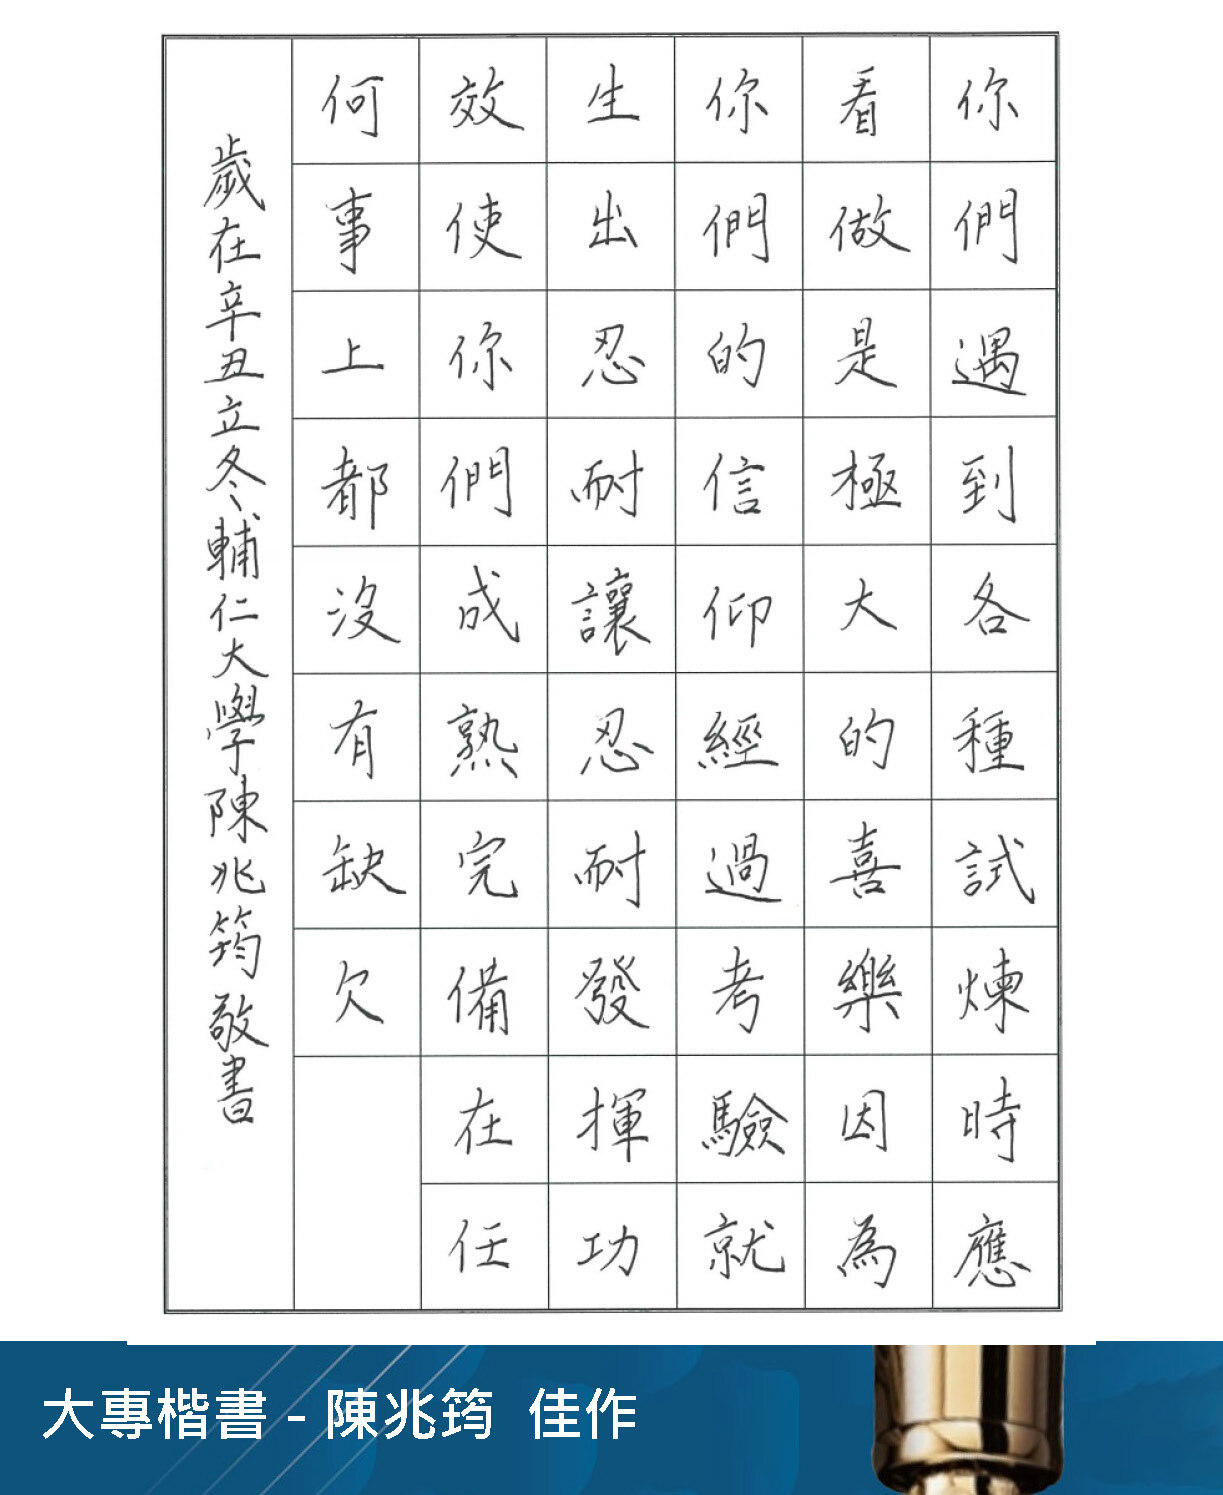 你們遇到各種試煉時應
看做是極大的喜樂因為
你們的信仰經過考驗就
生出忍耐讓忍耐發揮功
效使你們成熟完備在任
何事上都沒有缺欠
歲在辛丑立冬輔仁大學陳兆筠敬書
大專楷書 - 陳兆筠 佳作